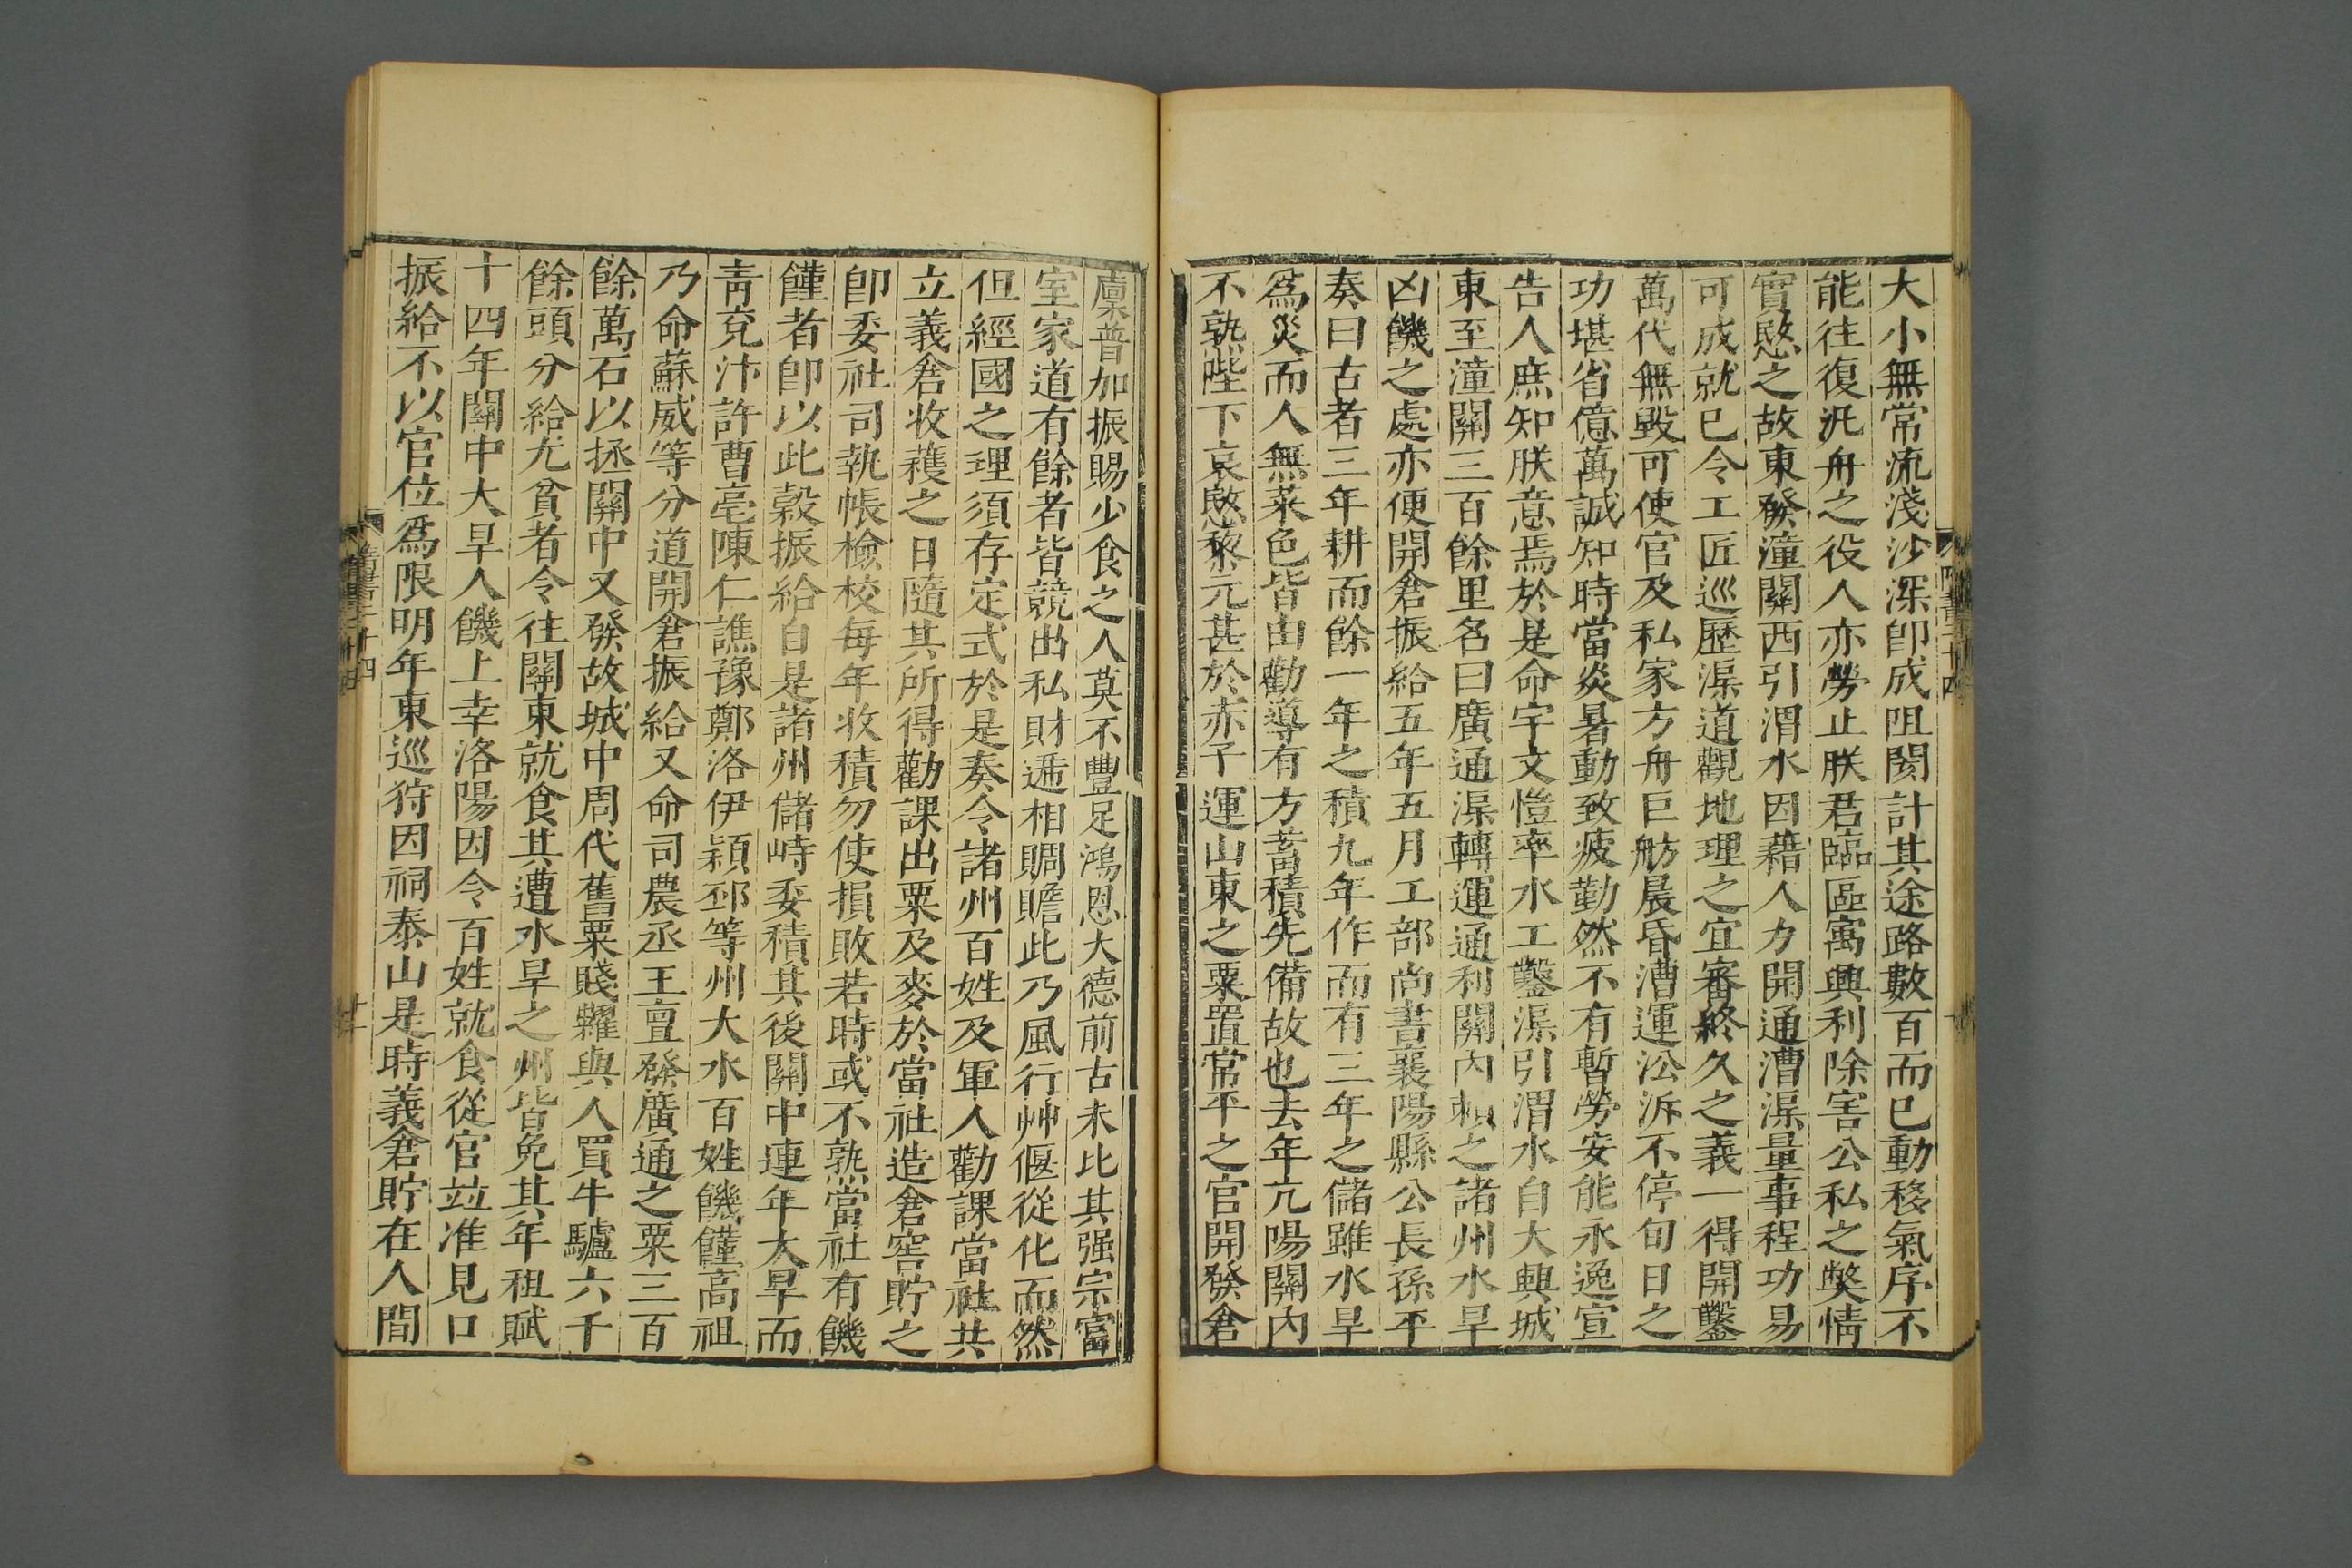 大小無常流淺沙深即成阻閡計其途路數百而已動移氣序不
能往復汎舟之役人亦勞止朕君臨區寓興利除害公私之弊情
實愍之故東發潼關西引渭水因藉人力開通漕渠量事程功易
可成就已令工匠巡歷渠道觀地理之宜審終久之義一得開鑿
萬代無毀可使官及私家方舟巨舫晨昏漕運㳂泝不停旬日之
功堪省億萬誠知時當炎暑動致疲勤然不有暫勞安能永逸宣
告人庶知朕意焉於是命宇文愷率水工鑿渠引渭水自大興城
東至潼關三百餘里名曰廣通渠轉運通利關內賴之諸州水旱
凶饑之處亦便開倉振給五年五月工部尚書襄陽縣公長孫平
奏曰古者三年耕而餘一年之積九年作而有三年之儲雖水旱
爲災而人無菜色皆由勸導有方蓄積先備故也去年亢陽關內
不孰陛下哀愍黎元甚於赤子運山東之粟置常平之官開發倉
廩普加振賜少食之人莫不豐足鴻恩大德前古未比其强宗富
室家道有餘者皆競出私財遞相賙贍此乃風行艸偃從化而然
但經國之理須存定式於是奏令諸州百姓及軍人勸課當社共
立義倉收穫之日隨其所得勸課出粟及麥於當社造倉窖貯之
即委社司執帳檢校每年收積勿使損敗若時或不孰當社有饑
饉者即以此穀振給自是諸州儲峙委積其後關中連年大旱而
青兗汴許曹亳陳仁譙豫鄭洛伊潁邳等州大水百姓饑饉高祖
乃命蘇威等分道開倉振給又命司農丞王亶發廣通之粟三百
餘萬石以拯關中又發故城中周代舊粟賤糶與人買牛驢六千
餘頭分給尤貧者令往關東就食其遭水旱之州皆免其年租賦
十四年關中大旱人饑上幸洛陽因令百姓就食從官竝准見口
振給不以官位爲限明年東巡狩因祠泰山是時義倉貯在人間
隋書二十四